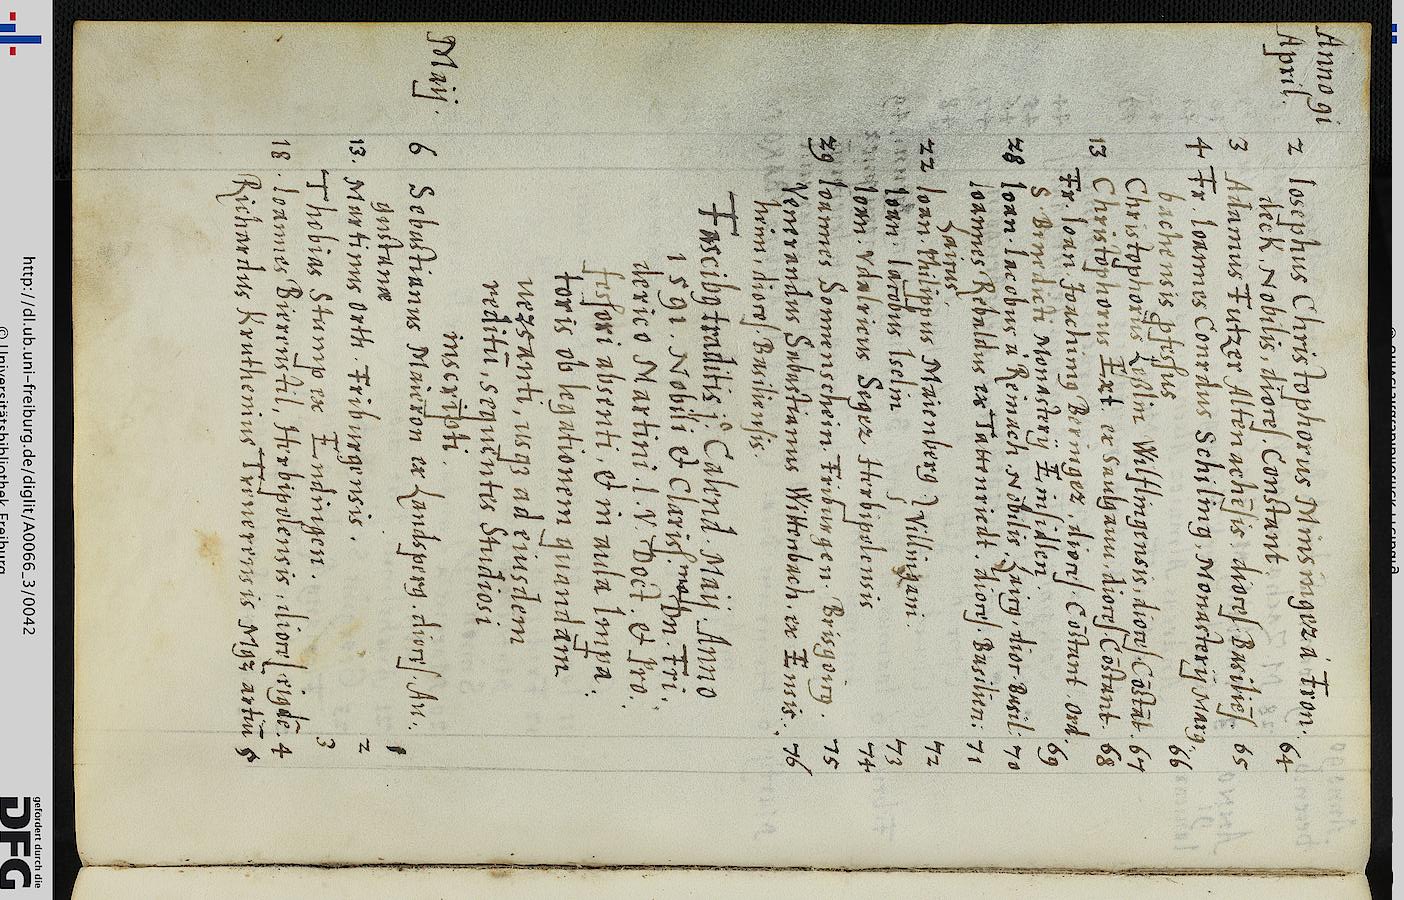 Anno 91
April. 2 Iosephus Christophorus Minsinger à Fron. 64
deck. Nobilis, dioec. Constant.
3 Adamus Futzer Altenachēsis. dioec. Basilieñ. 65
4 Fr. Ioannes Conradus Schiling. Monasterij Marg.
bachensis pfessus 66
Christophorus Wilflingensis, dioec. Cōstāt. 67
13 Christophorus Ext. ex Saulgaun. dioec. Cōstant. 68
Fr. Ioan. Joachimg Beringer dioec. Cōstant. ord.
S. Benedicti Monasterij Einsidlen 69
28 Ioan. Iacobus à Reinach Nobilis, Laicg, dioec. Basil. 70
Ioannes Rebaldus ex Tatenriedt. dioec. Basilien. 71
Laicus
22 Ioan. Philippus Maienberg } Villingani. 72
Ioan. Iacobus Iselin 73
Ioan. Vdalricus Herbipolensis 74
29 Ioannes Sonnenschein. Friburgen. Brisgoicg. 75
Venerandus Sebastianus Wittenbach, ex Ensis. 76
heim, dioec. Basiliensis.
Fascibg traditis ip. Calend. Maij. Anno
1591. Nobili & Clariss.mo Dn. Fri.
derico Martini. I. V. Doct. & Pro.
fessori absenti, & in aula Impa.
toris ob legationem quandam
versanti, usq ad eiusdem
reditū, sequentes Studiosi
inscripti.
Maij. 6 Sebastianus Maieron ex Landsperg. dioec. Au. 1
gustanæ
13. Martinus orth. Friburgensis. 2
Thobias Stump ex Endingen. 3
18. Ioannes Herbipolensis. dioec. eiusdē. 4
Richardus Treverensis Mgr. artiū 5
http://dl.ub.uni-freiburg.de/diglit/A0066_3/0042
© Universitätsbibliothek Freiburg
gefördert durch die
DFG